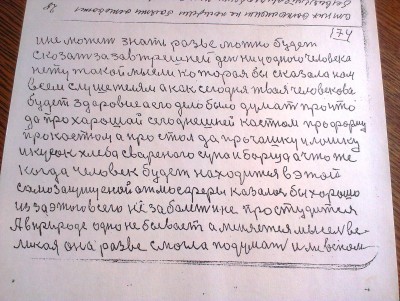 174
и не может знать разве можно будет
сказат за завтрешней ден ниодного человека
нету такой мысли которая бы сказала нам
всем слушателям а как сегодня твая человекова
будет здоровие а его дело было думат про што
да про харошай сегоднешней
про а про стол да про чашку и лошку
и кусок хлеба свареного супа и борща а что же
когда человек будет находится в этой
самозащищеной атмосферы казалос бы хорошо
из за этого всего не забалит и не простудится
А в природе одно не бывает а меняется мысел ве-
ликая она разве смогла подумат или вспом